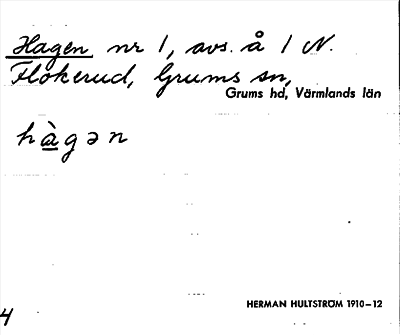 Hagen nr 1, avs. å 1 N.
Flokerud, Grums sn,
Grums hd, Värmlands län
hàgən
HERMAN HULTSTRÖM 1910–12
4